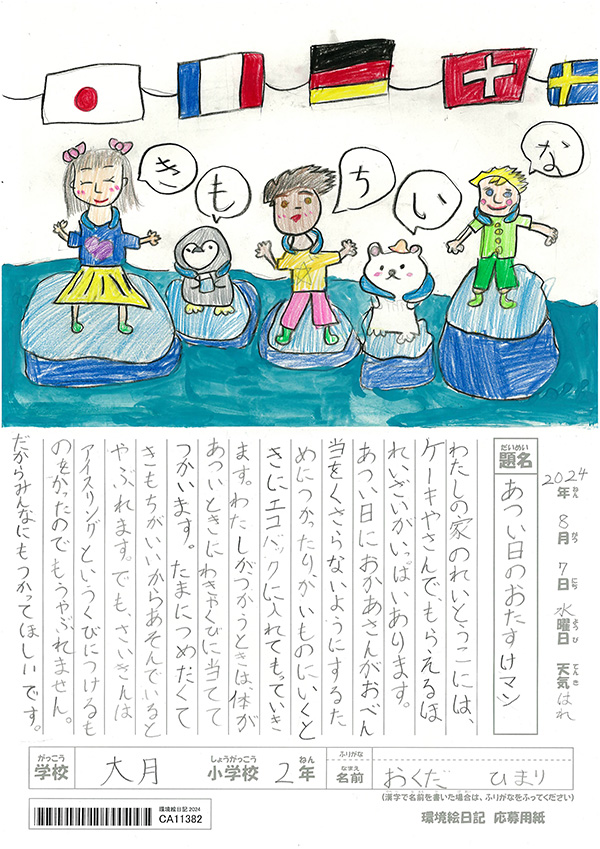 きもちいいな
2024年ねん 8月がつ 7日にち 水曜日ようび 天気てんき はれ
題名だいめい あつい日のおたすけマン
わたしの家のれいとうこには、
ケーキやさんで、もらえるほ
れいざいがいっぱいあります。
あつい日におかあさんがおべん
当をくさらないようにするた
めにつかったり、かいものにいくと
きにエコバックに入れてもっていき
ます。わたしがつかうときは体が
あついときにわきやくびに当てて
つかいます。たまにつめたくて
きもちがいいからあそんでいると
やぶれます。でも、さいきんは
アイスリングというくびにつけるも
のをかったのでもうやぶれません。
だからみんなにもつかってほしいです。
学校がっこう 大月 小学校しょうがっこう 2年ねん 名前なまえ ふりがな おくだ ひまり
(漢字で名前を書いた場合は、ふりがなをふってください)
環境絵日記 2024
CA11382
環境絵日記 応募用紙